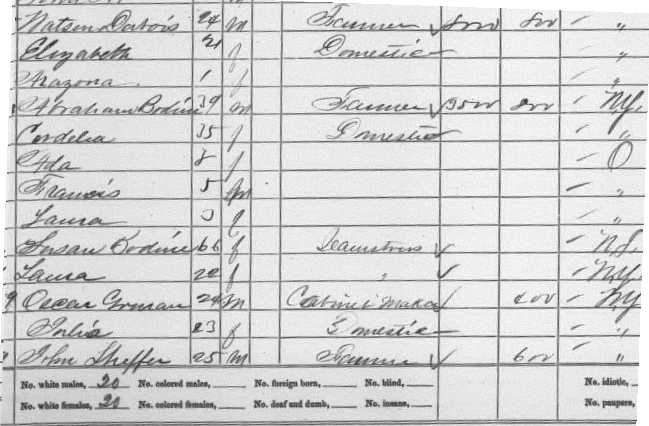 Watson Dubois 24 m Farmer 8000 800 "
Elizabeth 21 f Domestic "
Arazona 1 f "
Abraham Bodine 39 m Farmer 3500 800 N.Y.
Cordelia 35 f Domestic "
Ada 8 f O
Francis 5 m "
Laura 3 f "
Susan Bodine 66 f Seamstress N.J.
Laura 22 f " N.Y.
9 Oscar Gorman 24 m Cabinet Maker 400 N.Y.
Julia 23 f Domestic "
John Sheffer 25 m Farmer 600 "
No. white males, 20 No. colored males, No. foreign born, No. blind, No. idiotic,
No. white females, 20 No. colored females, No. deaf and dumb, No. insane, No. paupers,